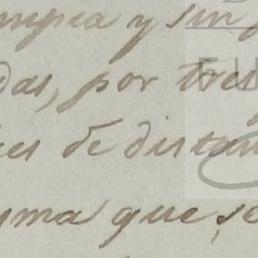 mpia y sin
das, por tres
es de distan
yma que, se